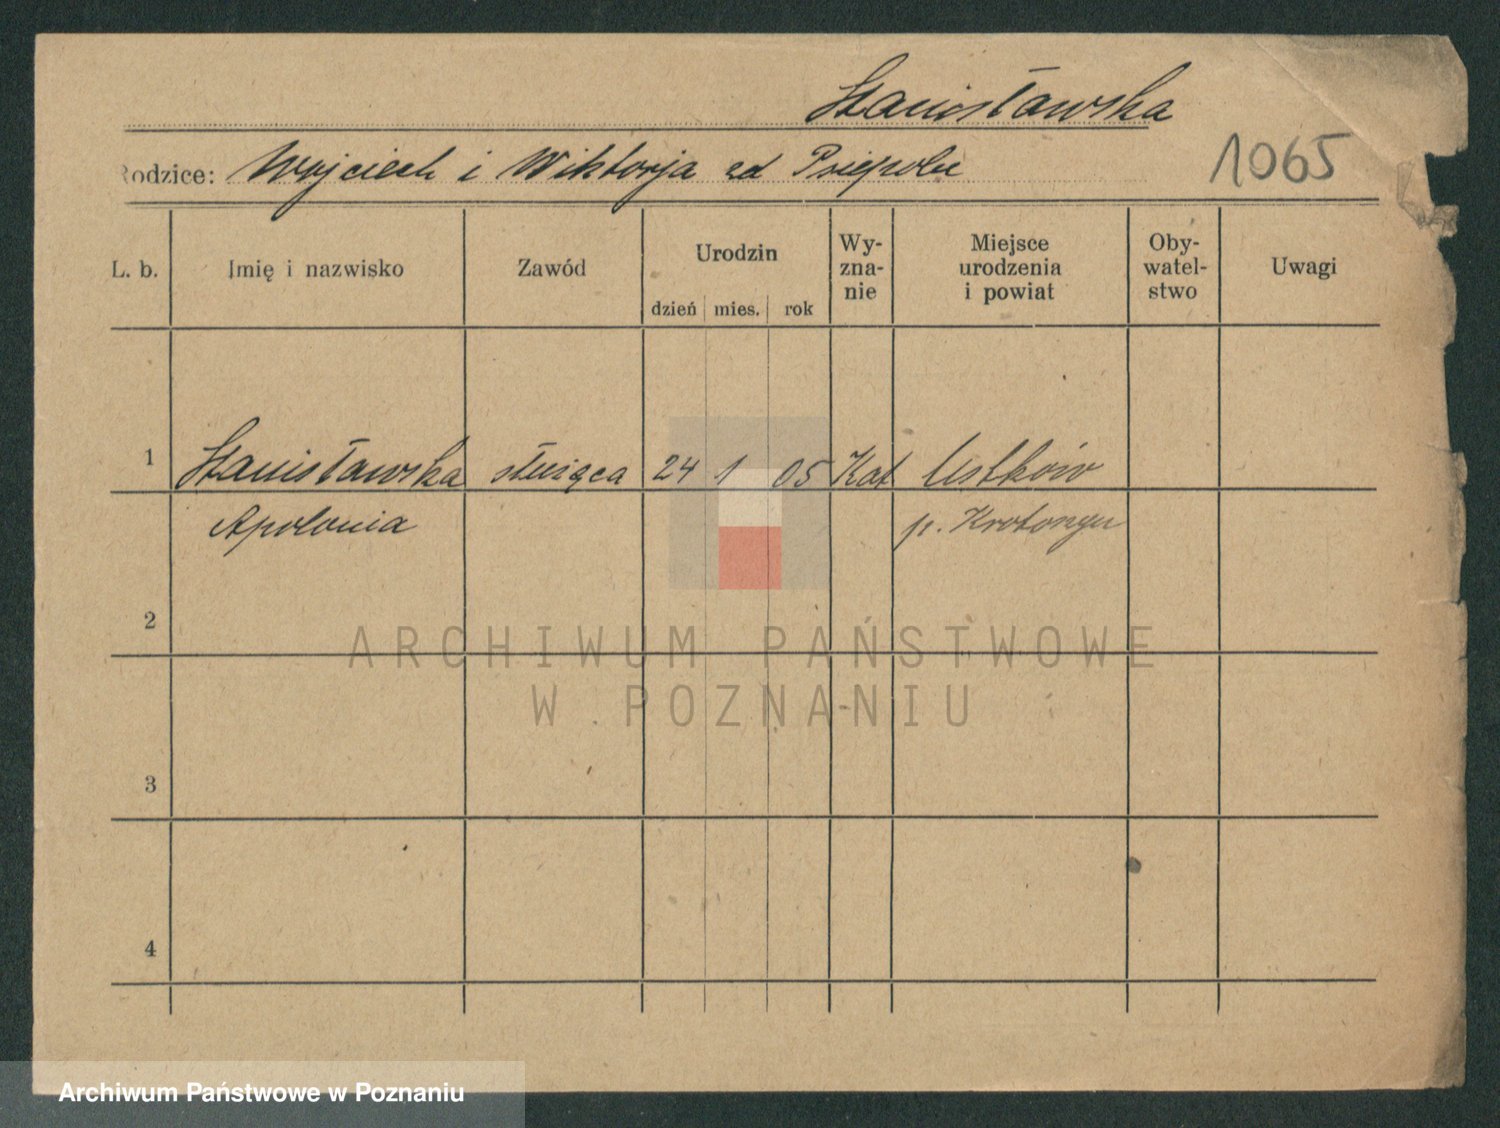 Stanisławska
Rodzice: Wojciech i Wiktorja zd Psiepole
1065
L. b. Imię i nazwisko Zawód Urodzin dzień mies. rok Wy-zna-nie Miejsce urodzenia i powiat Oby-watel-stwo Uwagi
1 Stanisławska służąca 24 1 05 Kat Ustków
Apolonia p. Krotoszyn
2
ARCHIWUM PAŃSTWOWE
W POZNANIU
3
4
Archiwum Państwowe w Poznaniu